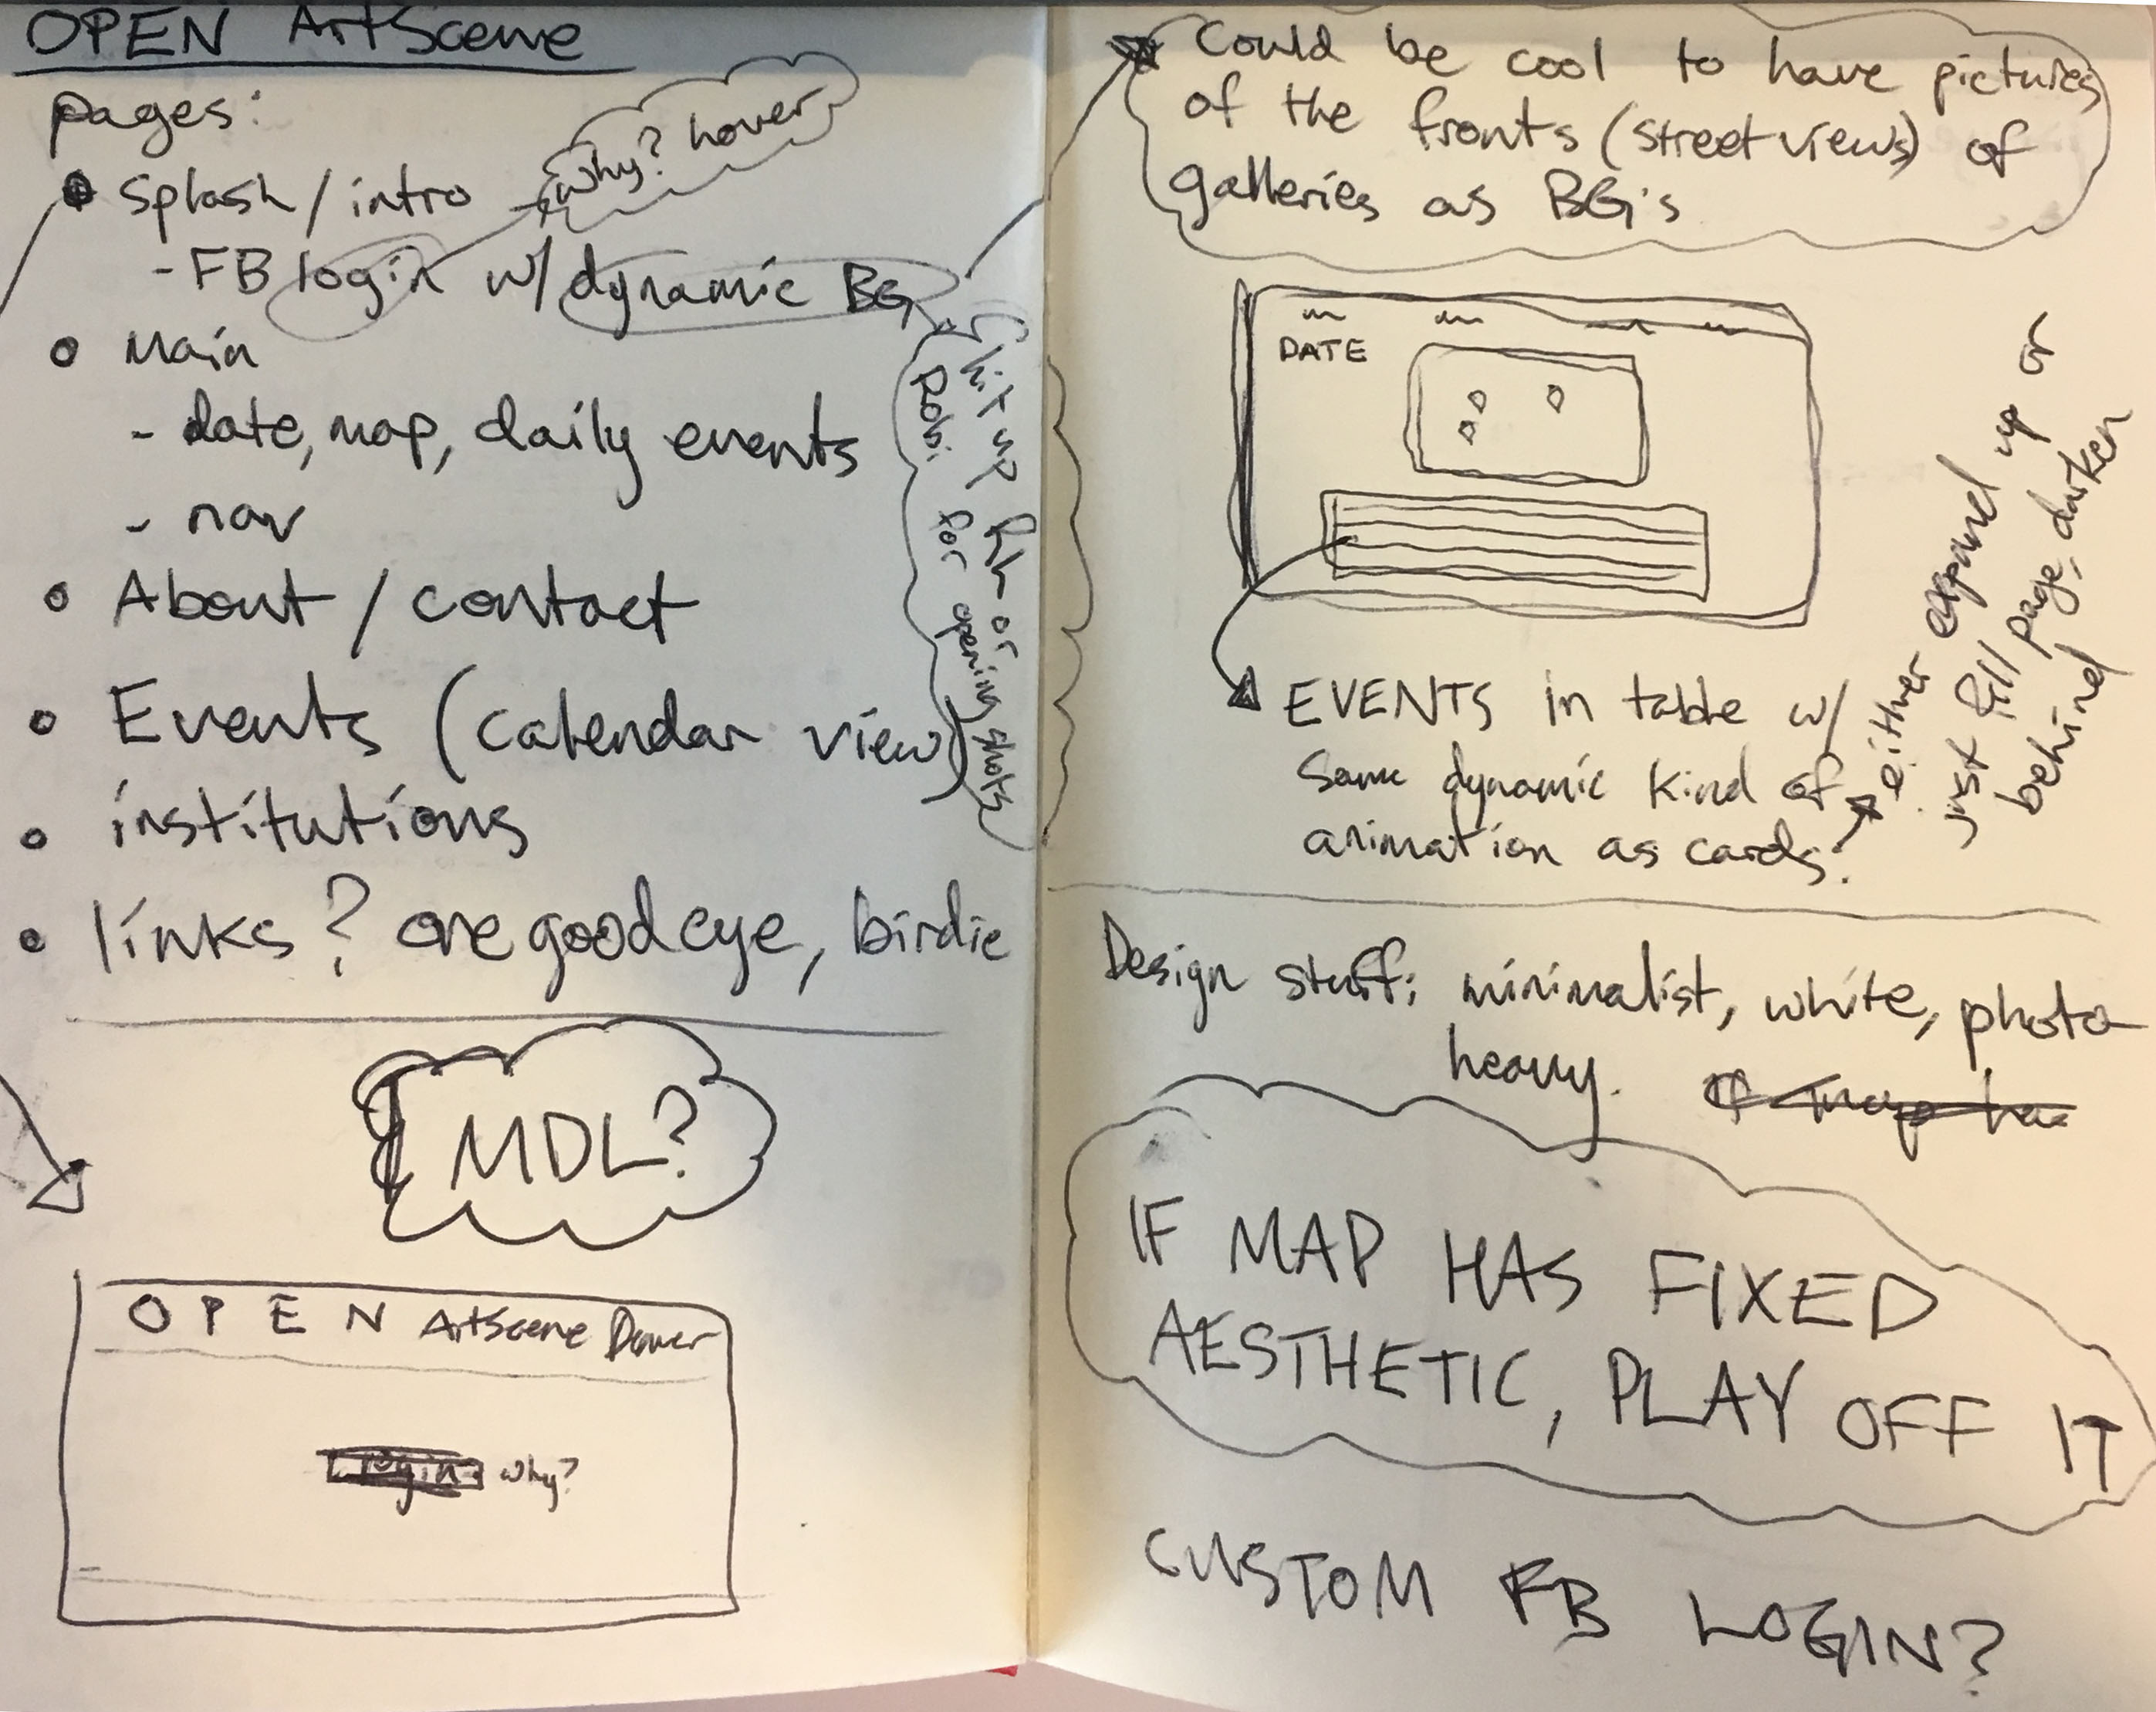 OPEN ArtScene
pages:
Splash / intro
why? hover
- FB login w/ dynamic BG
Main
- date, map, daily events
- nav
About / contact
Events (calendar view)
institutions
links? one good eye, birdie
hit up RH or
Robi for opening shots
MDL?
OPEN ArtScene Denver
Login why?
Could be cool to have pictures
of the fronts (street views) of
galleries as BG's
DATE
EVENTS in table w/
same dynamic kind of
animation as cards.
either expand up or
just fill page, darken
behind
Design stuff: minimalist, white, photo
heavy.
IF MAP HAS FIXED
AESTHETIC, PLAY OFF IT
CUSTOM FB LOGIN?